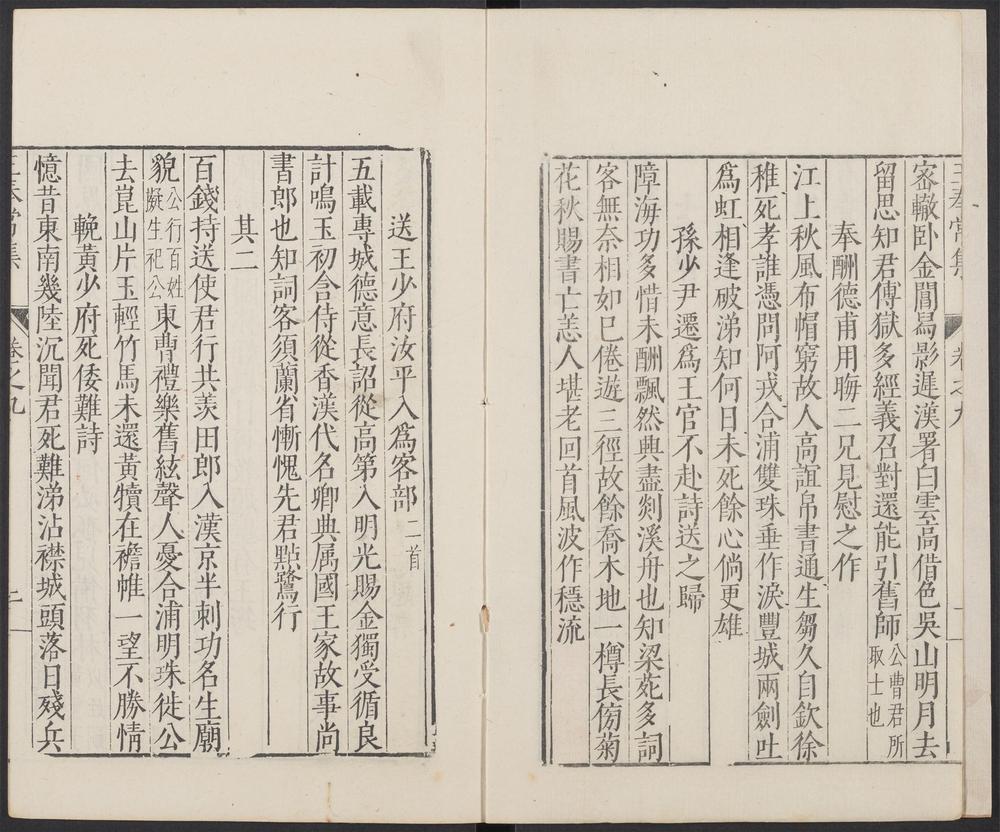 密轍卧金閶曷影遲漢署白雲高借色吳山明月去
留思知君傅獄多經義召對還能引舊師公曹君所取士也
奉酬德甫用晦二兄見慰之作
江上秋風布帽窮故人高誼帛書通生芻久自欽徐
稚死孝誰憑問阿戎合浦雙珠垂作淚豐城兩劍吐
爲虹相逢破涕知何日未死餘心倘更雄
孫少尹遷爲王官不赴詩送之歸
障海功多惜未酬飄然興盡剡溪舟也知梁苑多詞
客無奈相如已倦遊三徑故餘喬木地一樽長傍菊
花秋賜書亡恙人堪老回首風波作穩流
送王少府汝平入爲客部二首
五載專城德意長詔從高第入明光賜金獨受循良
計鳴玉初含侍從香漢代名卿典属國王家故事尚
書郎也知詞客須蘭省慚愧先君點鷺行
其二
百錢持送使君行共羡田郎入漢京半刺功名生廟
貌公行百姓擬生祀公東曹禮樂舊絃聲人憂合浦明珠徙公
去崑山片玉輕竹馬未還黃犢在襜帷一望不勝情
輓黃少府死倭難詩
憶昔東南幾陸沉聞君死難涕沾襟城頭落日殘兵
卷之九